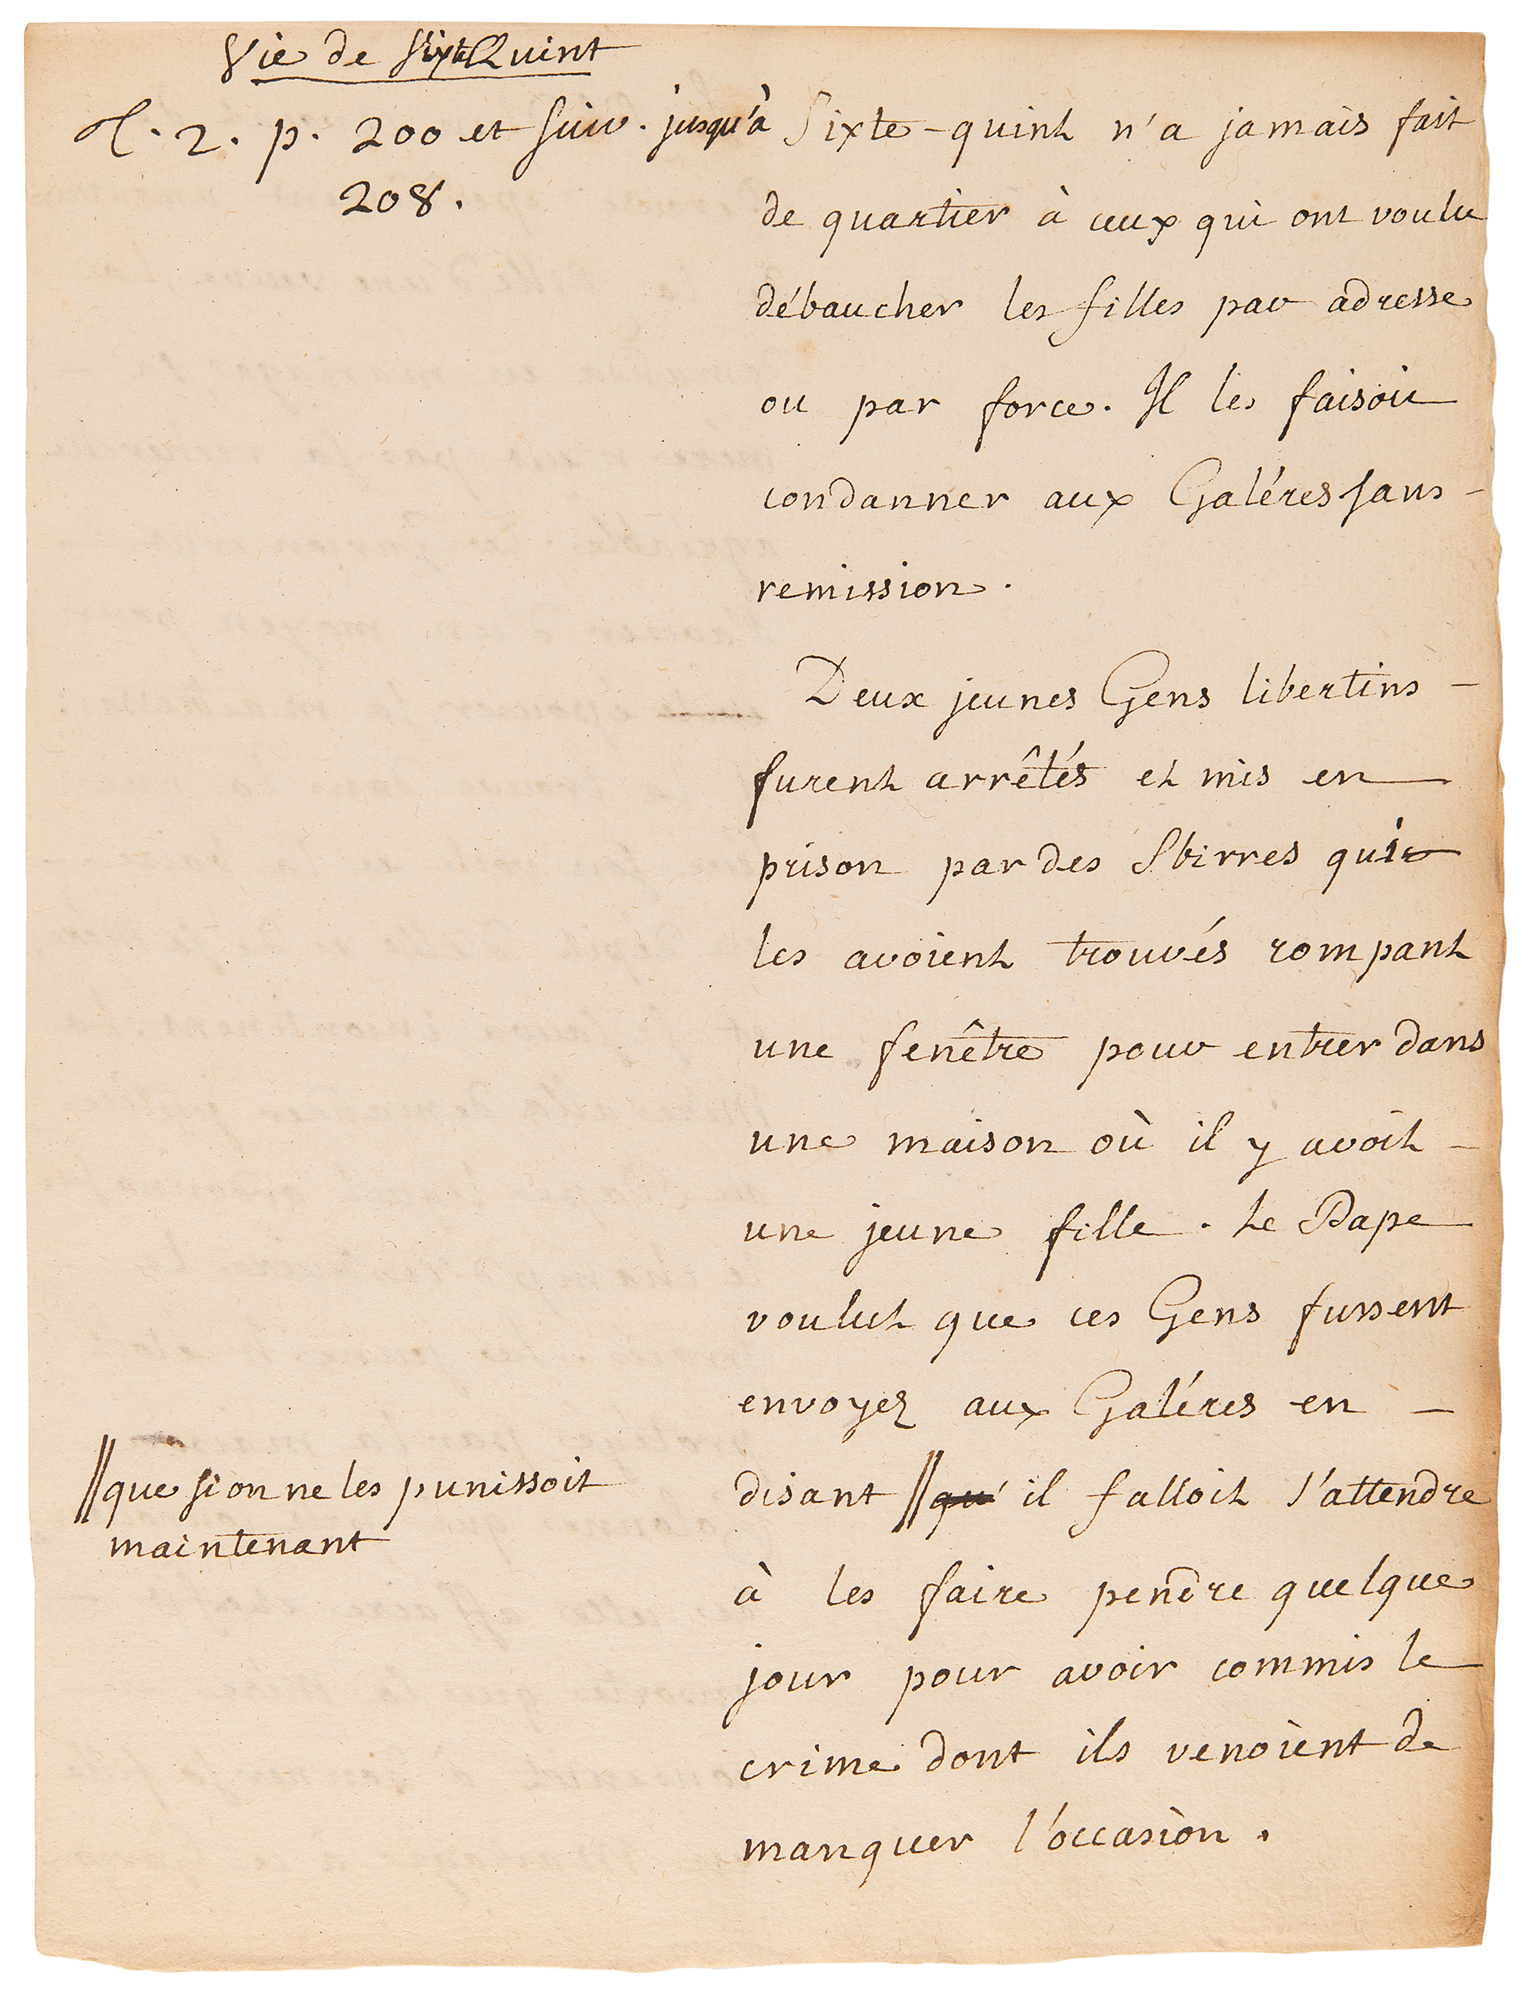 Vie de Sixte Quint
T. 2. p. 200 et suiv. jusqu'à
208.
Sixte-quint n'a jamais fait
de quartier à ceux qui ont voulu
débaucher les filles par adresse
ou par force. Il les faisoit
condanner aux Galéres sans
remission.
Deux jeunes Gens libertins
furent arrêtés et mis en
prison par des Sbirres qui
les avoient trouvés rompant
une fenêtre pour entrer dans
une maison où il y avoit
une jeune fille. Le Pape
voulut que ces Gens fussent
envoyez aux Galéres en
disant // qu' il falloit s'attendre
à les faire pendre quelque
jour pour avoir commis le
crime dont ils venoient de
manquer l'occasion.
// que si on ne les punissoit
maintenant